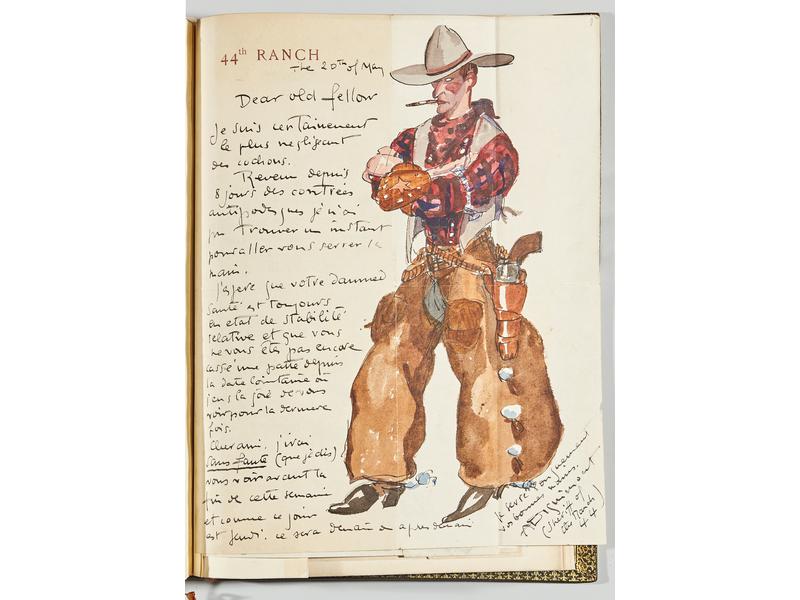 44th RANCH
The 20th of May
Dear old fellow
Je suis certainement
le plus negligent
des cochons.
Revenu depuis
8 jours des contrées
antipodesques je n'ai
pu trouver un instant
pour aller vous serrer la
main.
J'espere que votre damned
santé est toujours
en etat de stabilité
relative et que vous
ne vous êtes pas encore
cassé une patte depuis
la date lointaine où
j'eus la joie de vous
voir pour la derniere
fois.
Cher ami, j'irai
sans faute (que je dis)
vous voir avant la
fin de cette semaine
et comme ce jour
est jeudi. ce sera demain ou apres demain
Je serre longuement
vos bonnes mains.
(Sheriff of
the Ranch)
44